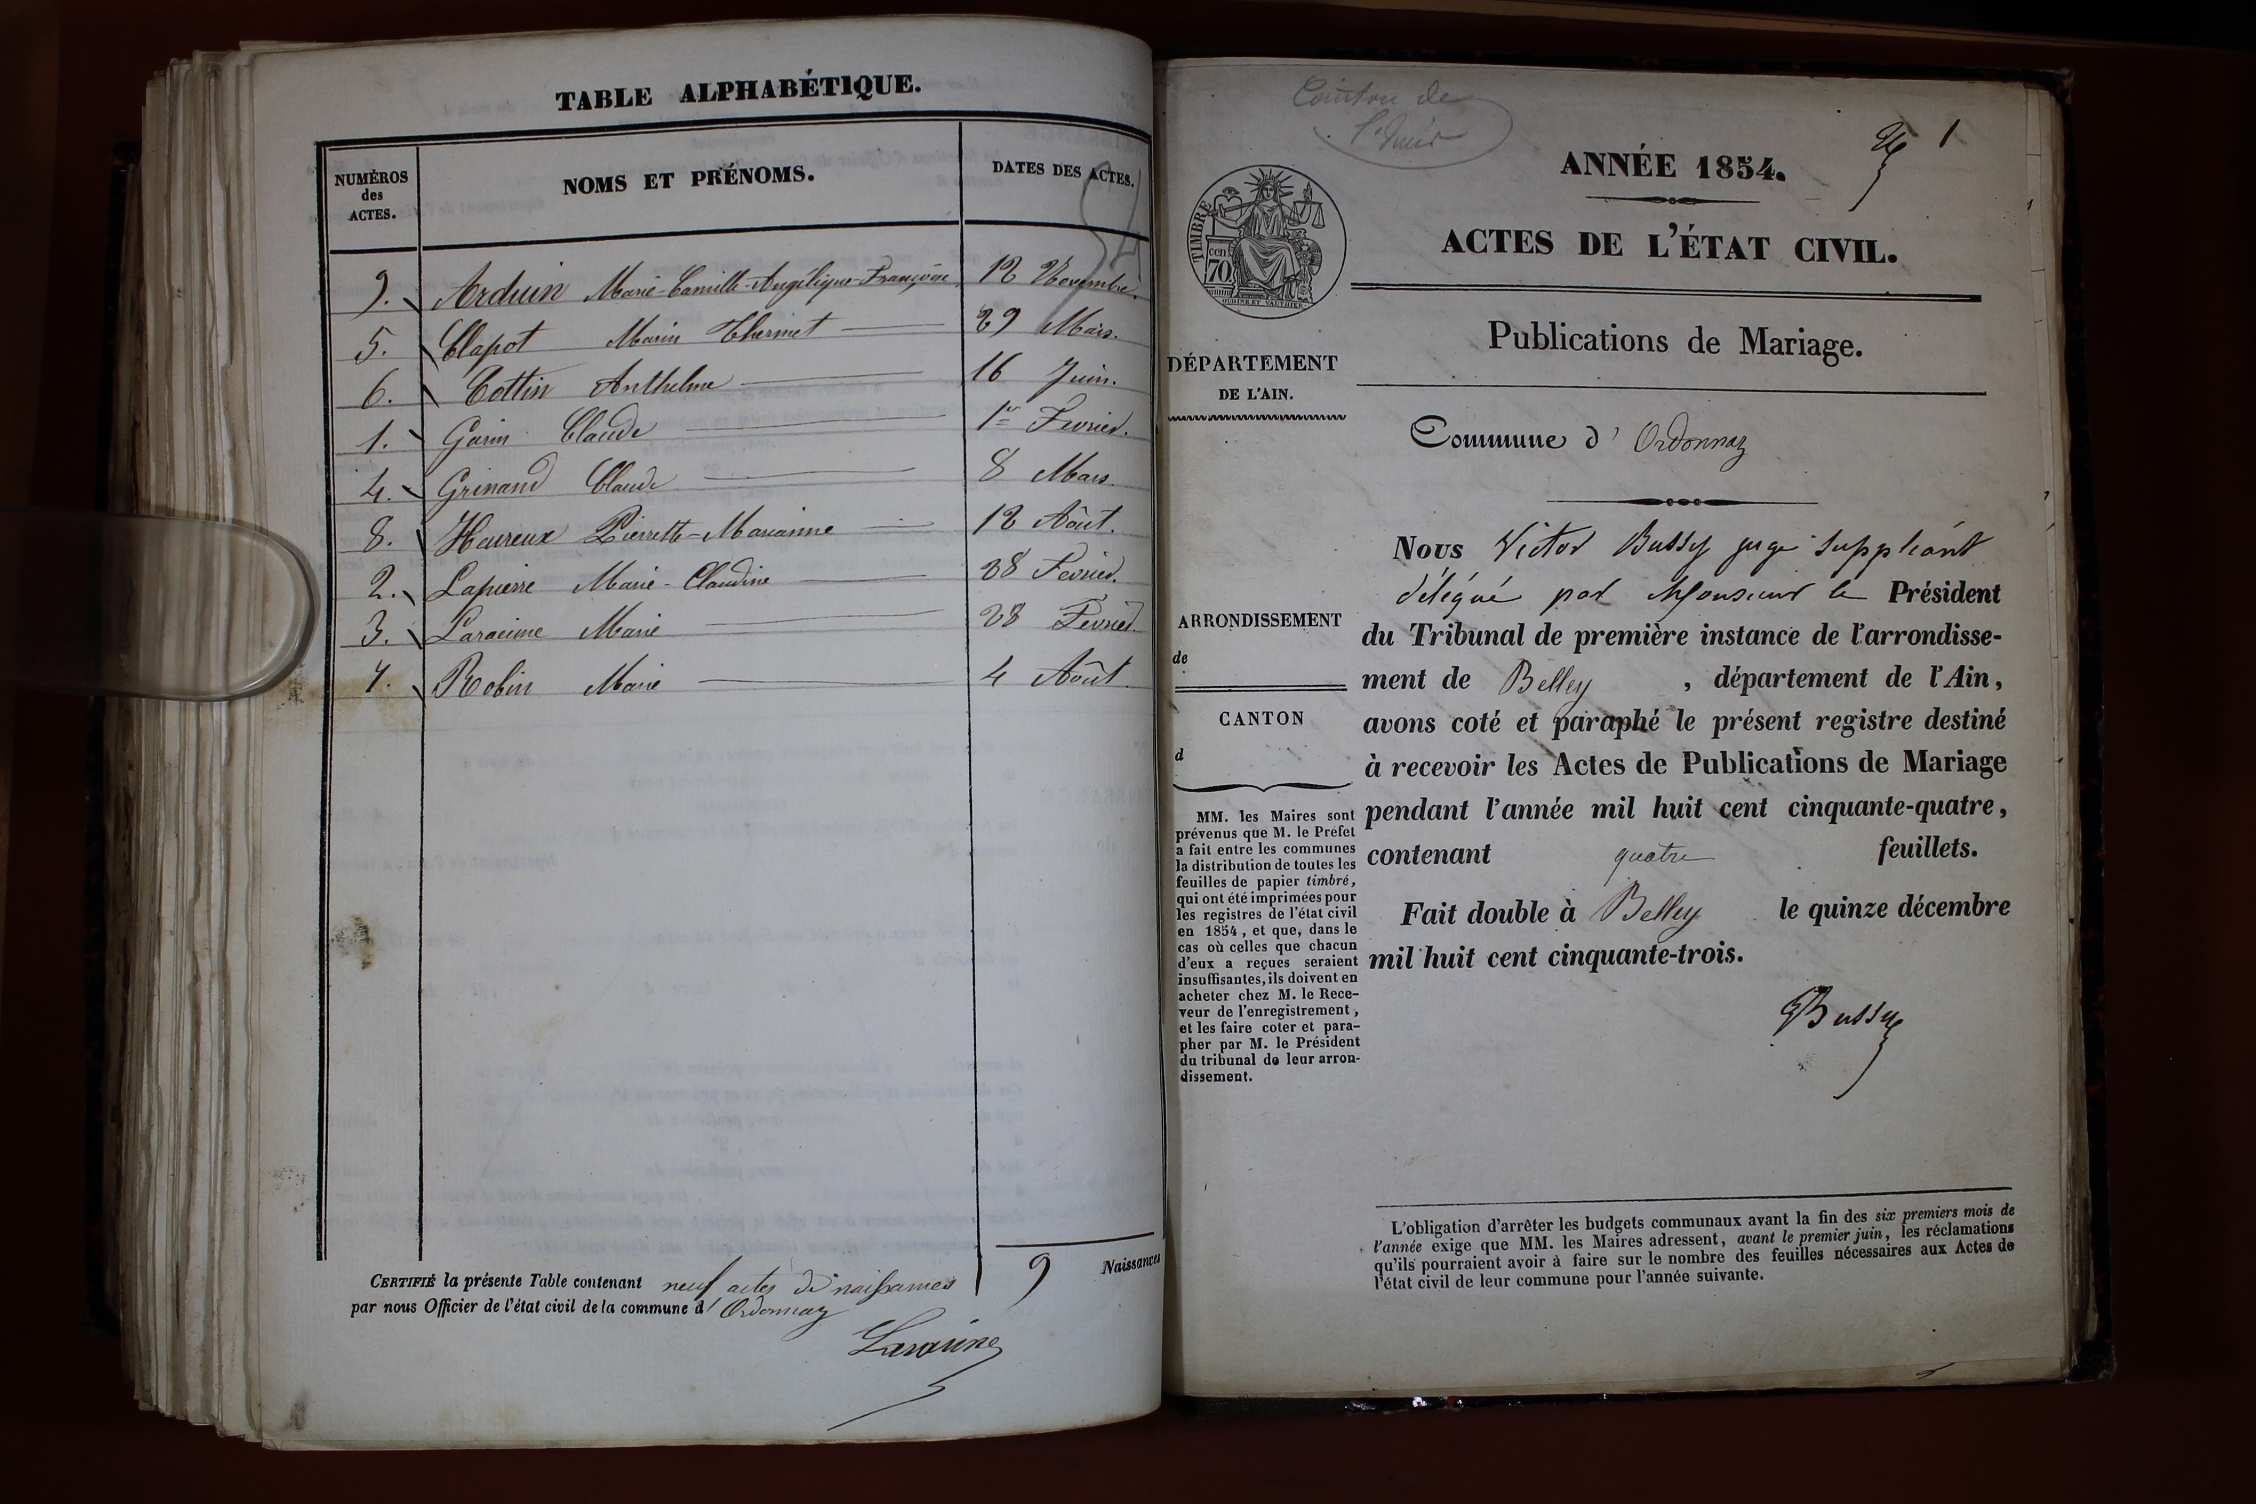 TABLE ALPHABÉTIQUE.
NUMÉROS des ACTES. NOMS ET PRÉNOMS. DATES DES ACTES.
9. Arduin Marie-Camille-Angélique-Françoise 12 Novembre.
5. Clapot Marin Thermet 29 Mars.
6. Cottin Anthelme 16 Juin.
1. Garin Claude 1er Fevrier.
4. Grinand Claude 8 Mars
8. Heureux Pierrette-Marianne 12 Août.
2. Lapierre Marie-Claudine 28 Fevrier.
3. Laracine Marie 28 Fevrier.
7. Robin Marie 4 Août
9 Naissances
CERTIFIÉ la présente Table contenant neuf actes de naissances
par nous Officier de l'état civil de la commune d'Ordonnaz
Laracine
1
ANNÉE 1854.
ACTES DE L'ÉTAT CIVIL.
TIMBRE
70 cen
Publications de Mariage.
DÉPARTEMENT
DE L'AIN.
Commune d'Ordonnaz
ARRONDISSEMENT
de
CANTON
d
MM. les Maires sont
prévenus que M. le Préfet
a fait entre les communes
la distribution de toutes les
feuilles de papier timbré,
qui ont été imprimées pour
les registres de l'état civil
en 1854, et que, dans le
cas où celles que chacun
d'eux a reçues seraient
insuffisantes, ils doivent en
acheter chez M. le Rece-
veur de l'enregistrement,
et les faire coter et para-
pher par M. le Président
du tribunal de leur arron-
dissement.
Nous Victor Bussy juge suppléant
délégué par Monsieur le Président
du Tribunal de première instance de l'arrondisse-
ment de Belley, département de l'Ain,
avons coté et paraphé le présent registre destiné
à recevoir les Actes de Publications de Mariage
pendant l'année mil huit cent cinquante-quatre,
contenant quatre feuillets.
Fait double à Belley le quinze décembre
mil huit cent cinquante-trois.
Bussy
L'obligation d'arrêter les budgets communaux avant la fin des six premiers mois de
l'année exige que MM. les Maires adressent, avant le premier juin, les réclamations
qu'ils pourraient avoir à faire sur le nombre des feuilles nécessaires aux Actes de
l'état civil de leur commune pour l'année suivante.